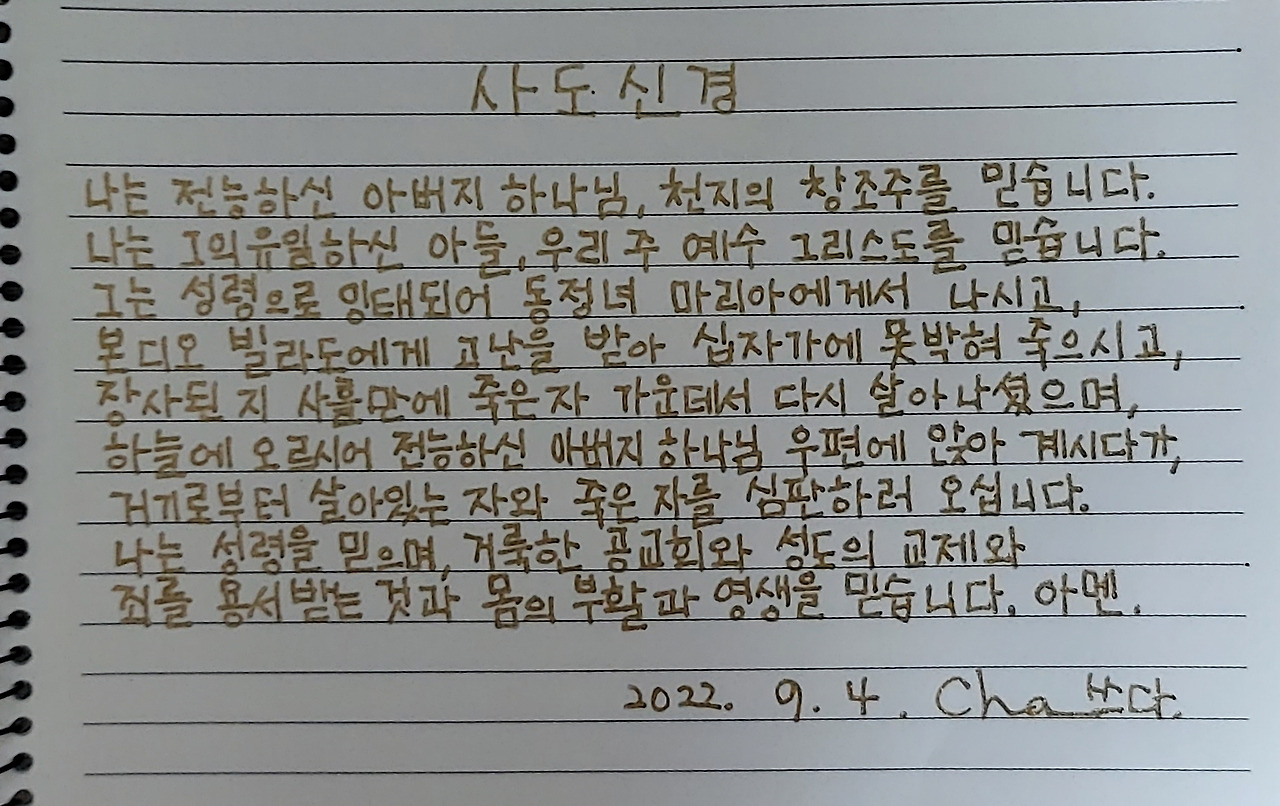 사도신경
나는 전능하신 아버지 하나님, 천지의 창조주를 믿습니다.
나는 그의 유일하신 아들, 우리 주 예수 그리스도를 믿습니다.
그는 성령으로 잉태되어 동정녀 마리아에게서 나시고,
본디오 빌라도에게 고난을 받아 십자가에 못박혀 죽으시고,
장사된 지 사흘만에 죽은 자 가운데서 다시 살아나셨으며,
하늘에 오르시어 전능하신 아버지 하나님 우편에 앉아 계시다가,
거기로부터 살아있는 자와 죽은 자를 심판하러 오십니다.
나는 성령을 믿으며, 거룩한 공교회와 성도의 교제와
죄를 용서받는 것과 몸의 부활과 영생을 믿습니다. 아멘.
2022. 9. 4. Cha 쓰다.